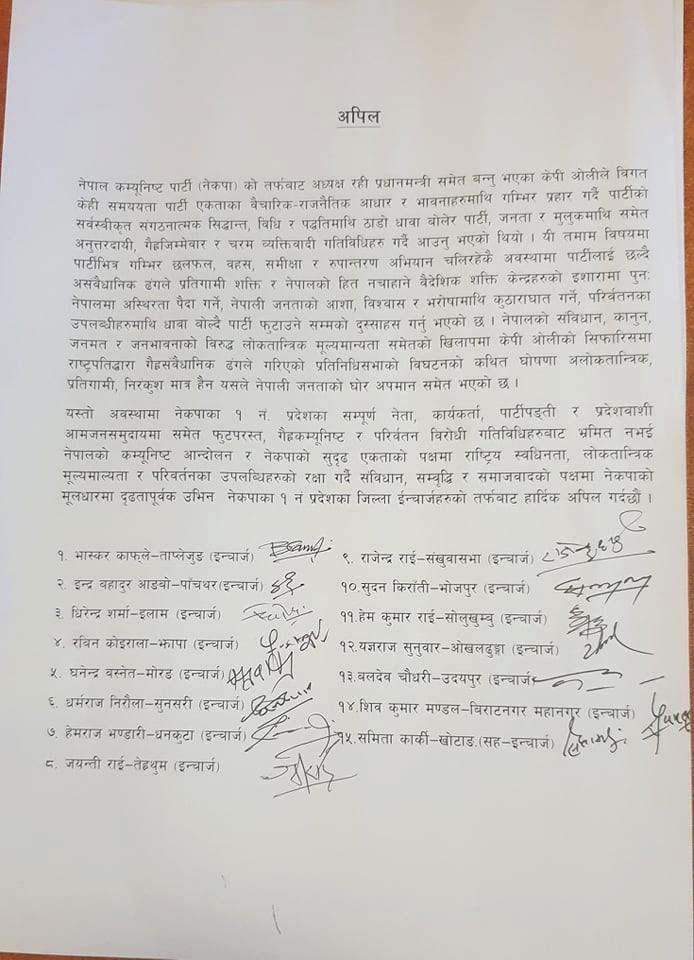 अपिल
नेपाल कम्यूनिष्ट पार्टी (नेकपा) को तर्फबाट अध्यक्ष रही प्रधानमन्त्री समेत बन्नु भएका केपी ओलीले विगत
केही समययता पार्टी एकताका वैचारिक-राजनैतिक आधार र भावनाहरुमाथि गम्भिर प्रहार गर्दै पार्टीको
सर्वस्वीकृत संगठनात्मक सिद्धान्त, विधि र पद्दतिमाथि ठाडो धावा बोलेर पार्टी, जनता र मुलुकमाथि समेत
अनुत्तरदायी, गैह्रजिम्मेवार र चरम व्यक्तिवादी गतिविधिहरु गर्दै आउनु भएको थियो । यी तमाम विषयमा
पार्टीभित्र गम्भिर छलफल, वहस, समीक्षा र रुपान्तरण अभियान चलिरहेकै अवस्थामा पार्टीलाई छल्दै
असवैधानिक ढंगले प्रतिगामी शक्ति र नेपालको हित नचाहाने वैदेशिक शक्ति केन्द्रहरुको इशारामा पुनः
नेपालमा अस्थिरता पैदा गर्ने, नेपाली जनताको आशा, विश्वास र भरोषामाथि कुठाराघात गर्ने, परिवर्तनका
उपलब्धीहरुमाथि धावा बोल्दै पार्टी फुटाउने सम्मको दुस्साहस गर्नु भएको छ । नेपालको संविधान, कानुन,
जनमत र जनभावनाको विरुद्ध लोकतान्त्रिक मूल्यमान्यता समेतको खिलापमा केपी ओलीको सिफारिसमा
राष्ट्रपतिद्धारा गैह्रसवैधानिक ढंगले गरिएको प्रतिनिधिसभाको विघटनको कथित घोषणा अलोकतान्त्रिक,
प्रतिगामी, निरंकुश मात्र हैन यसले नेपाली जनताको घोर अपमान समेत भएको छ ।
यस्तो अवस्थामा नेकपाका १ नं. प्रदेशका सम्पूर्ण नेता, कार्यकर्ता, पार्टीपङ्ती र प्रदेशवाशी
आमजनसमुदायमा समेत फुटपरस्त, गैह्रकम्यूनिष्ट र परिवर्तन विरोधी गतिविधिहरुबाट भ्रमित नभई
नेपालको कम्यूनिष्ट आन्दोलन र नेकपाको सुदृढ एकताको पक्षमा राष्ट्रिय स्वधिनता, लोकतान्त्रिक
मूल्यमाल्यता र परिवर्तनका उपलब्धिहरुको रक्षा गर्दै संविधान, सम्वृद्धि र समाजवादको पक्षमा नेकपाको
मूलधारमा दृढतापूर्वक उभिन नेकपाका १ नं प्रदेशका जिल्ला ईन्चार्जहरुको तर्फबाट हार्दिक अपिल गर्दछौं ।
१. भास्कर काफ्ले-ताप्लेजुङ (इन्चार्ज)
२. इन्द्र वहादुर आङवो-पाँचथर(इन्चार्ज)
३. धिरेन्द्र शर्मा-इलाम (इन्चार्ज)
४. रविन कोइराला-झापा (इन्चार्ज)
५. घनेन्द्र वस्नेत-मोरङ (इन्चार्ज)
६. धर्मराज निरौला-सुनसरी (इन्चार्ज)
७. हेमराज भण्डारी-धनकुटा (इन्चार्ज)
८. जयन्ती राई-तेह्रथुम (इन्चार्ज)
९. राजेन्द्र राई-संखुवासभा (इन्चार्ज)
१०. सुदन किराँती-भोजपुर (इन्चार्ज)
११. हेम कुमार राई-सोलुखुम्बु (इन्चार्ज)
१२. यज्ञराज सुनुवार-ओखलढुङ्गा (इन्चार्ज)
१३. बलदेव चौधरी-उदयपुर (इन्चार्ज)
१४. शिव कुमार मण्डल-विराटनगर महानगर (इन्चार्ज)
१५. समिता कार्की-खोटाङ (सह-इन्चार्ज)